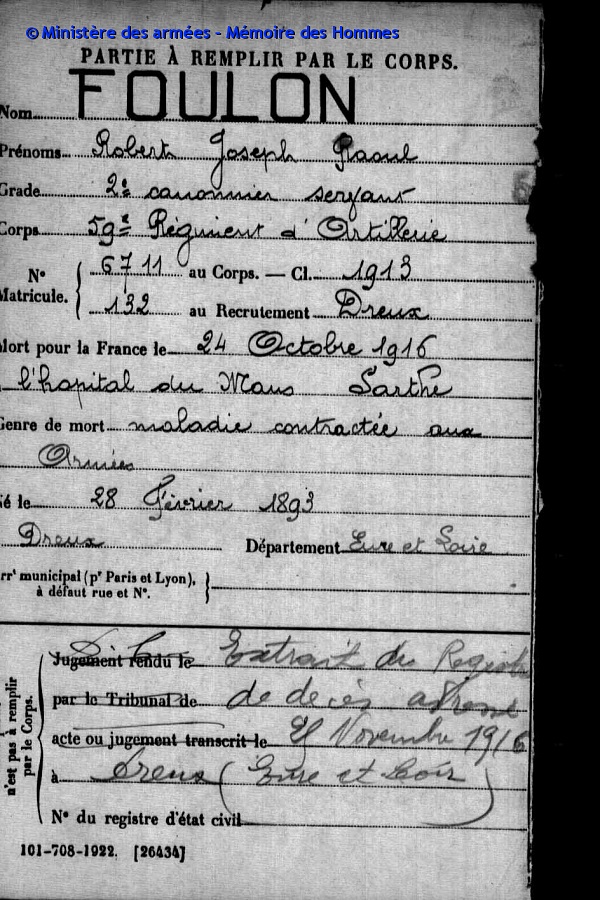 © Ministère des armées - Mémoire des Hommes
PARTIE À REMPLIR PAR LE CORPS.
Nom FOULON
Prénoms Robert Joseph Raoul
Grade 2e canonnier servant
Corps 59e Régiment d'Artillerie
No Matricule. { 6711 au Corps. — Cl. 1913
132 au Recrutement Dreux
Mort pour la France le 24 Octobre 1916
l'hopital du Mans Sarthe
Genre de mort maladie contractée aux
Armées
é le 28 Février 1893
Dreux Département Eure et Loire
rrt municipal (pr Paris et Lyon),
à défaut rue et No.
n'est pas à remplir
par le Corps.
Jugement rendu le Extrait du Registre
par le Tribunal de de décès adressé
acte ou jugement transcrit le Novembre 1916
à Dreux (Eure et Loir)
No du registre d'état civil
101-708-1922. [26434]